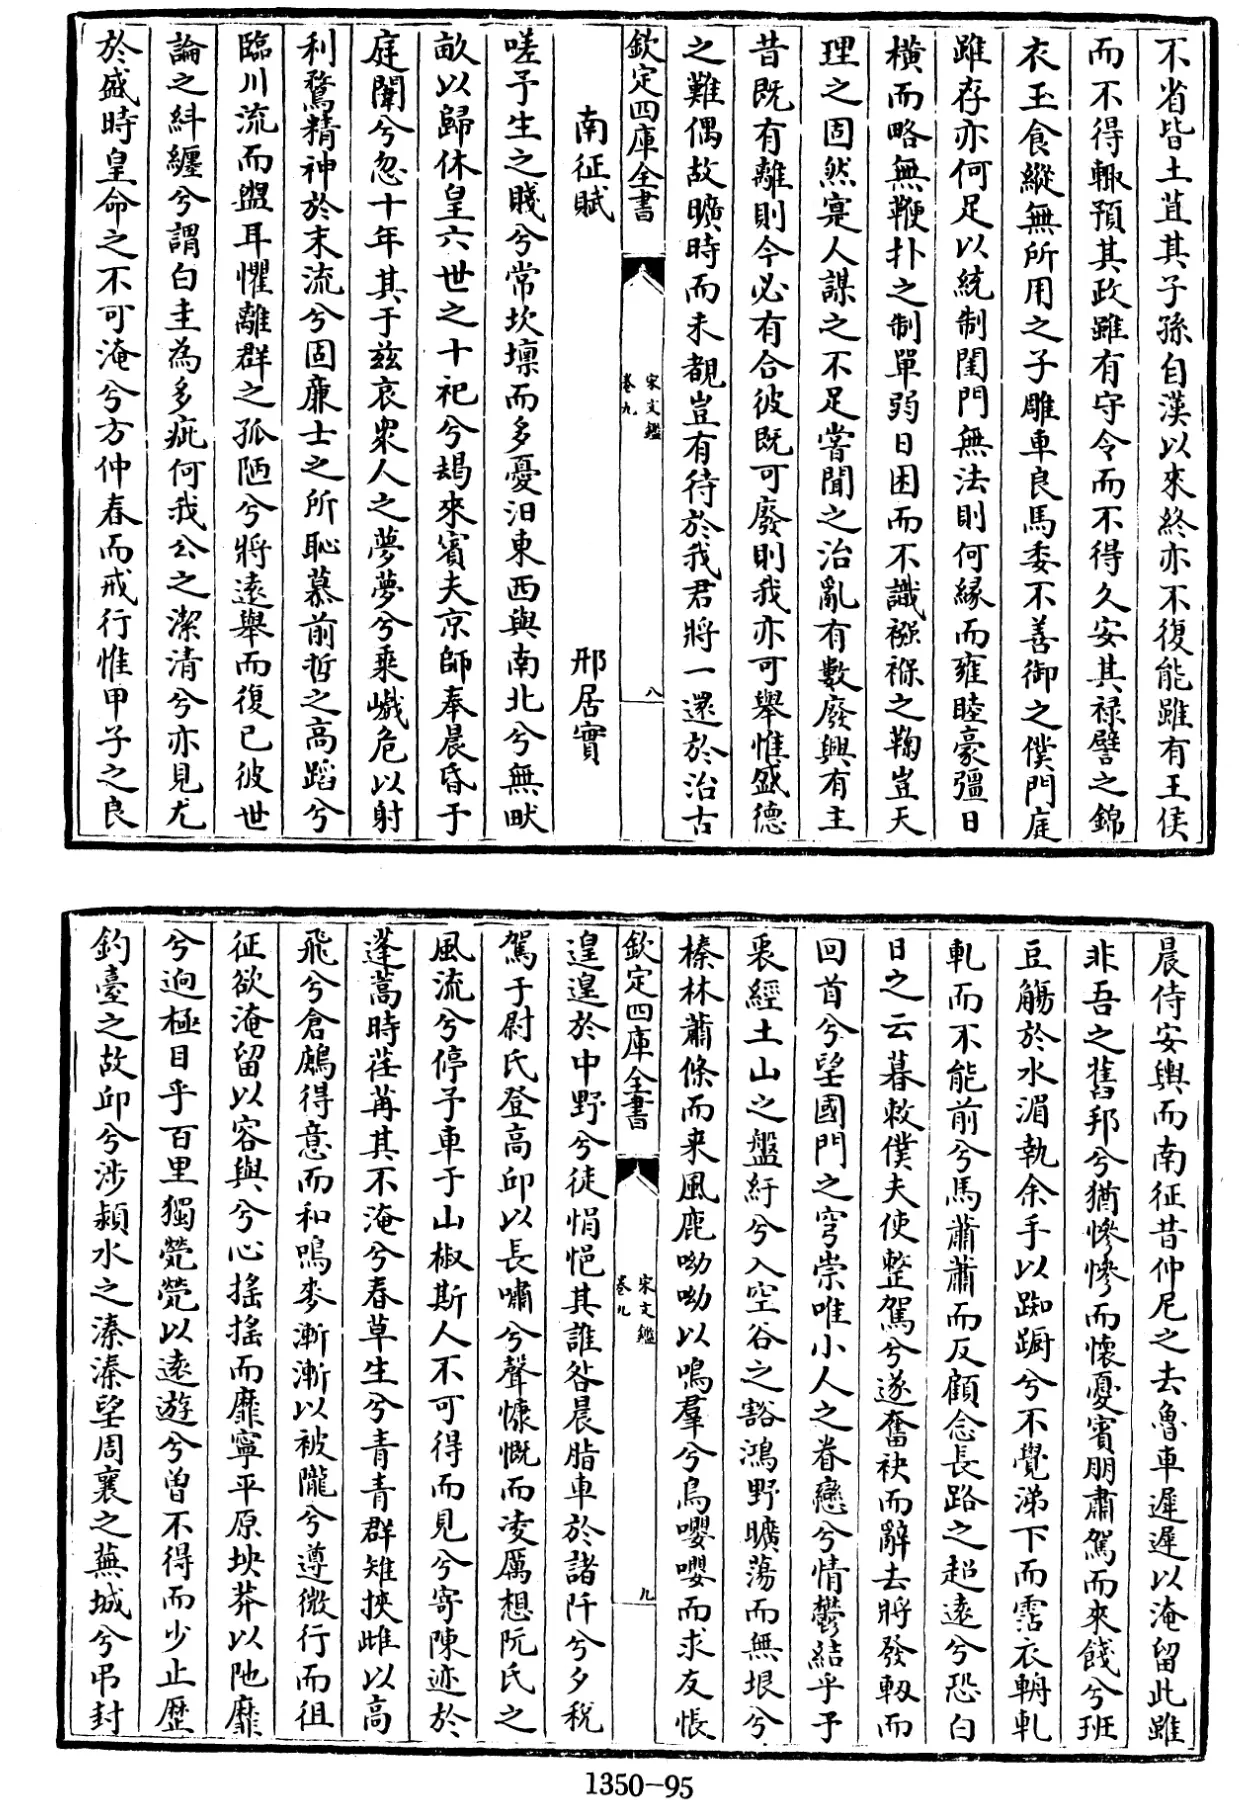 不省皆土苴其子孫自漢以來終亦不復能雖有王侯
而不得輙預其政雖有守令而不得久安其祿譬之錦
衣玉食縱無所用之子雕車良馬委不善御之僕門庭
雖存亦何足以統制閨門無法則何縁而雍睦豪彊日
橫而略無鞭扑之制單弱日困而不識襁褓之鞠豈天
理之固然寔人謀之不足嘗聞之治亂有數廢興有主
昔既有離則今必有合彼既可廢則我亦可舉惟盛德
之難偶故曠時而未覩豈有待於我君將一還於治古
欽定四庫全書
宋文鑑
卷九
八
南征賦
邢居實
嗟予生之賤兮常坎壈而多憂汨東西與南北兮無畎
畝以歸休皇六世之十祀兮朅來賓夫京師奉晨昏于
庭闈兮忽十年其于兹哀衆人之夢夢兮乘巇危以射
利騖精神於末流兮固廉士之所恥慕前哲之高蹈兮
臨川流而盥耳懼離群之孤陋兮將遠舉而復已彼世
論之糾纏兮謂白圭為多疵何我公之潔清兮亦見尤
於盛時皇命之不可淹兮方仲春而戒行惟甲子之良
晨侍安輿而南征昔仲尼之去魯車遲遲以淹留此雖
非吾之舊邦兮猶慘慘而懷憂賓朋肅駕而來餞兮班
豆觴於水湄執余手以踟蹰兮不覺涕下而霑衣輈軋
軋而不能前兮馬蕭蕭而反顧念長路之超遠兮恐白
日之云暮敕僕夫使整駕兮遂奮袂而辭去將發軔而
回首兮望國門之穹崇唯小人之眷戀兮情鬱結乎予
衷經土山之盤紆兮入空谷之谽鴻野曠蕩而無垠兮
榛林蕭條而來風鹿呦呦以鳴羣兮鳥嚶嚶而求友悵
欽定四庫全書
宋文鑑
卷九
九
遑遑於中野兮徒悁悒其誰咎晨脂車於諸阡兮夕稅
駕于尉氏登高邱以長嘯兮聲慷慨而凌厲想阮氏之
風流兮停予車于山椒斯人不可得而見兮寄陳迹於
蓬蒿時荏苒其不淹兮春草生兮青青群雉挾雌以高
飛兮倉鷃得意而和鳴麥漸漸以被隴兮遵微行而徂
征欲淹留以容與兮心搖搖而靡寧平原坱莽以阤靡
兮逈極目乎百里獨煢煢以遠遊兮曾不得而少止歷
釣臺之故邱兮涉潁水之溱溱望周襄之蕪城兮弔封
1350-95